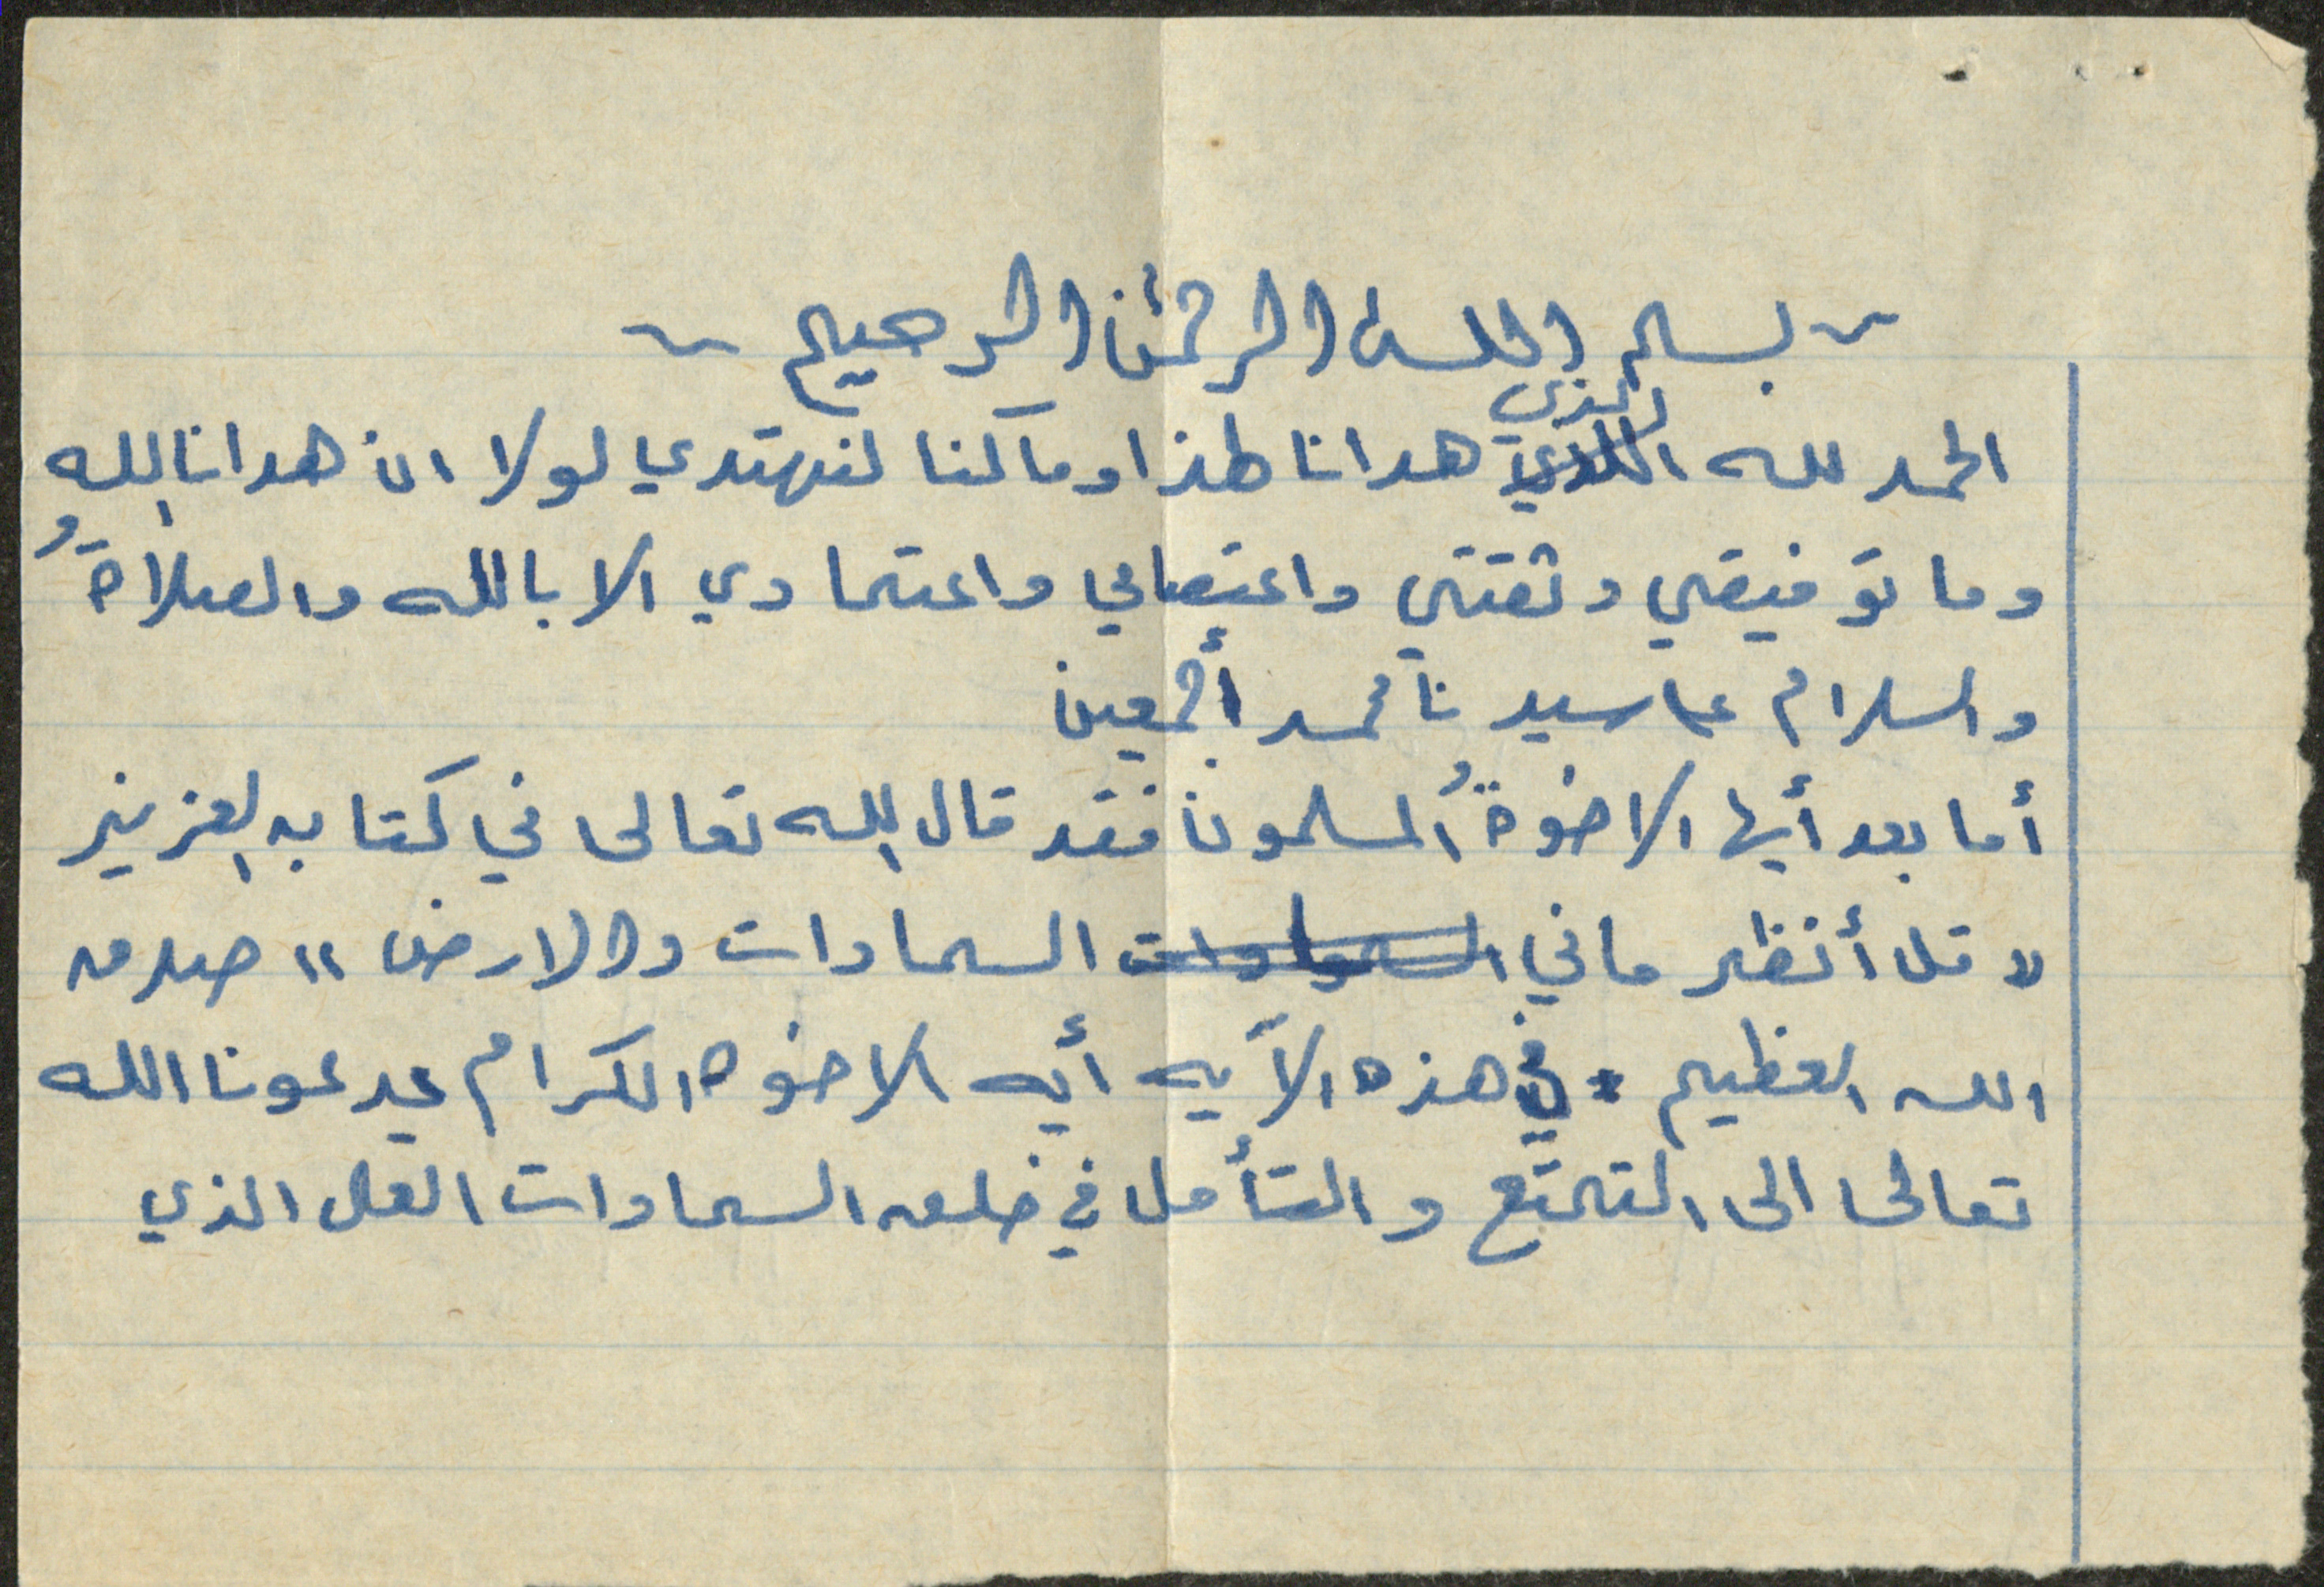 ~ بسم الله الرحمن الرحيم ~
الحمد لله الذي هدانا لهذا وما كنا لنهتدي لولا ان هدانا الله
وما توفيقي وثقتي واعتصامي واعتمادي الا بالله والصلاةُ
والسلام على سيدنا محمد أجمعين
أما بعد أيها الاخوةُ المسلمون فقد قال الله تعالى في كتابه العزيز
" قل أنظر ما في السماوات السماوات والارض " صدق
الله العظيم . في هذه الآيه أيه الاخوه الكرام يدعونا الله
تعالى الى التمتع والتأمل في خلق السماوات العلى الذي